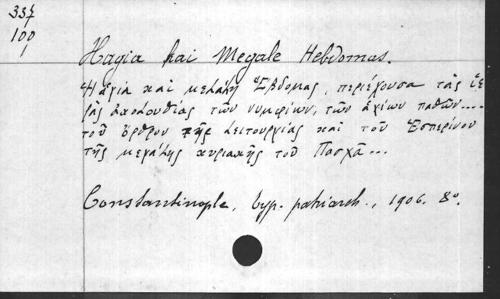 337
100
1
Hagia kai Megale Hebdomas.
Ἡ ἁγία καὶ μεγάλη Ἑβδομάς, περιέχουσα τὰς ἱε-
ρὰς ἀκολουθίας τῶν νυμφίων, τῶν ἁγίων παθῶν...
τοῦ ὄρθρου τῆς λειτουργίας καὶ τοῦ Ἑσπερίνου
τῆς μεγάλης κυριακῆς τοῦ Πάσχα...
Constantinople, typ. patriarch., 1906. 8°.